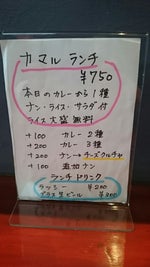 カマル ランチ
¥750
本日のカレーから1種
ナン・ライス・サラダ付
ライス大盛無料
+100 カレー2種
+200 カレー3種
+200 ナン→チーズクルチャ
+100 追加ナン
ランチドリンク
ラッシー ¥200
グラス生ビール ¥300